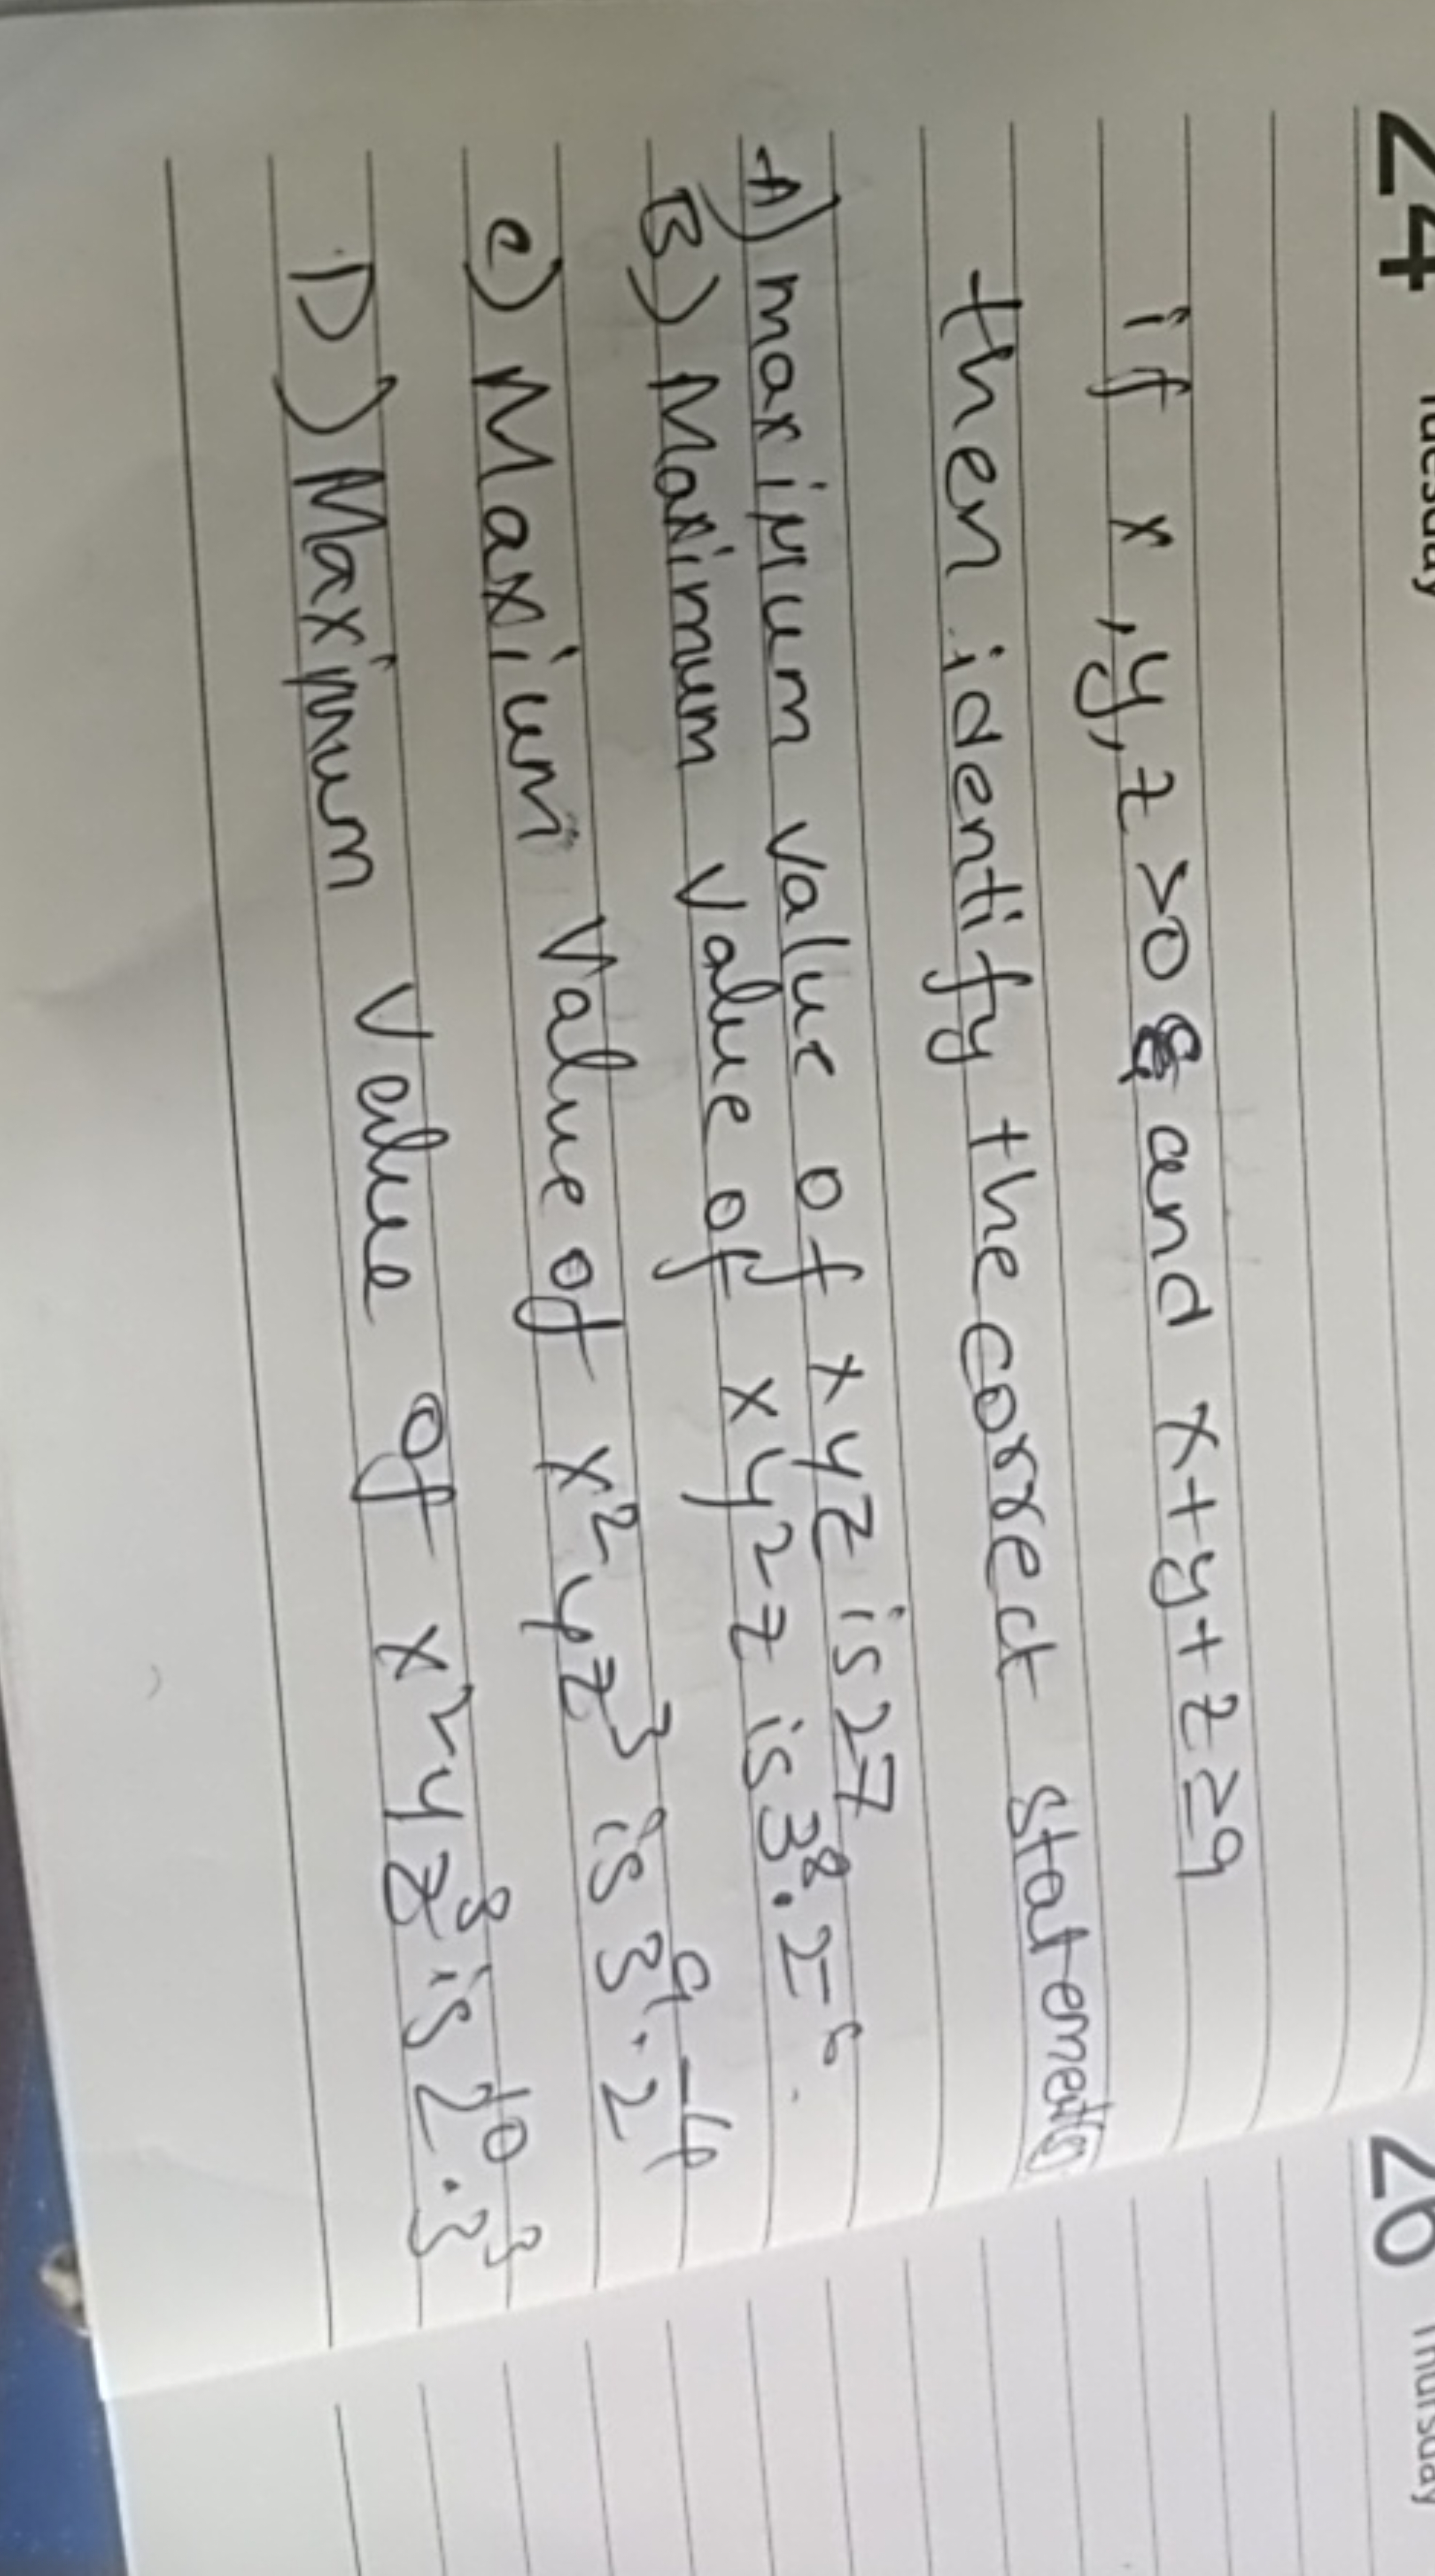 24 Tuesday
26 Thursday
if x, y, z >0 & and x+y+z ≥9
then identify the correct statements
A) maximum value of xyz is 27
B) Maximum value of xy²z is 3⁸.2⁻⁶.
c) Maxium value of x²yz³ is 3⁹.2⁻⁴
D) Maximum value of x²yz³ is 2¹⁰.3³